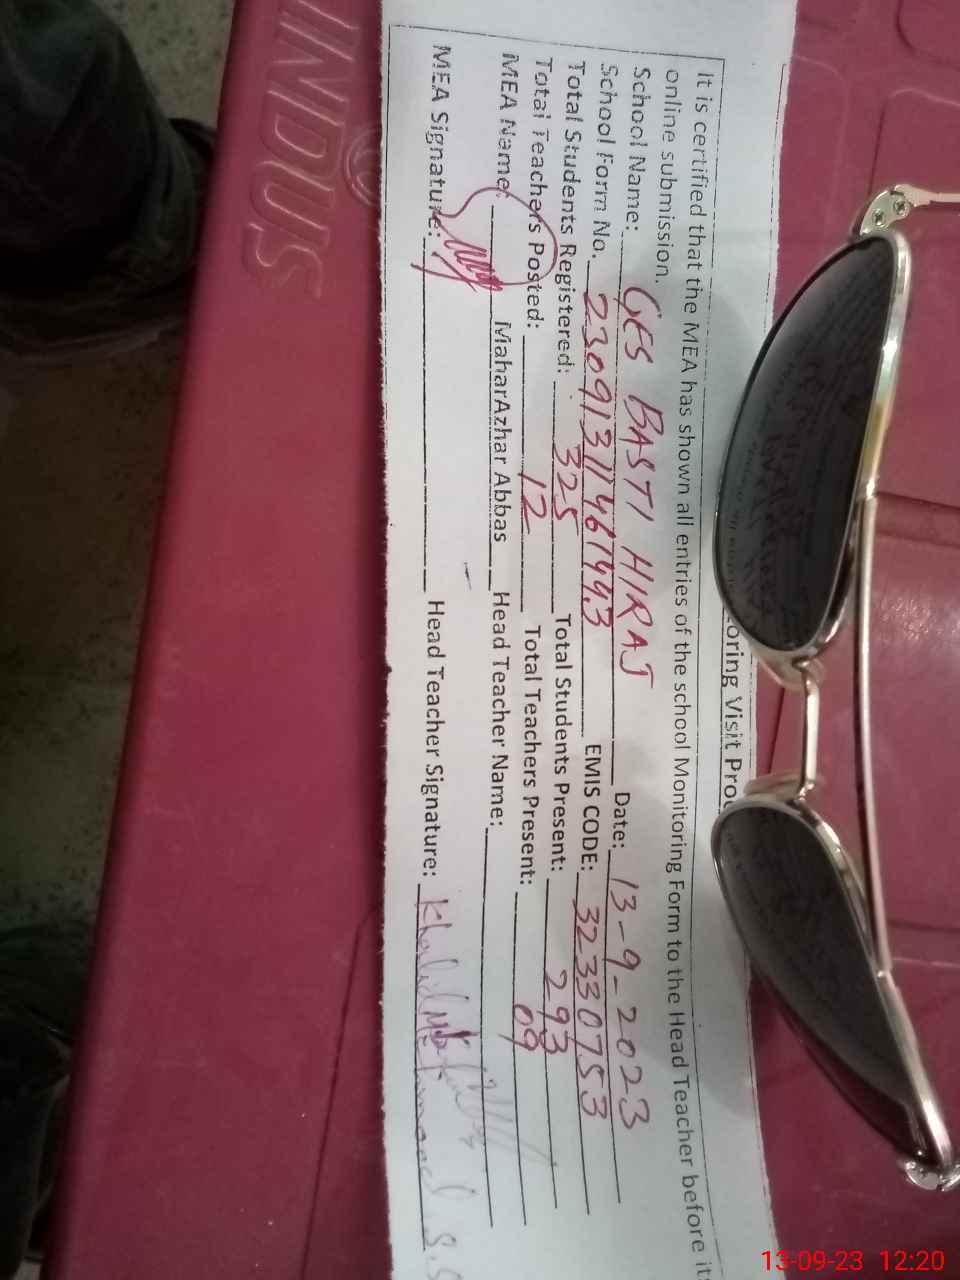 oring Visit Pro
It is certified that the MEA has shown all entries of the school Monitoring Form to the Head Teacher before it
online submission.
School Name: GES BASTI HIRAJ Date: 13-9-2023
School Form No. 23091311461443 EMIS CODE: 32330753
Total Students Registered: 325 Total Students Present: 293
Total Teachers Posted: 12 Total Teachers Present: 09
MEA Name: MaharAzhar Abbas Head Teacher Name:
MEA Signature: Head Teacher Signature: Khalid
INDUS
13-09-23 12:20